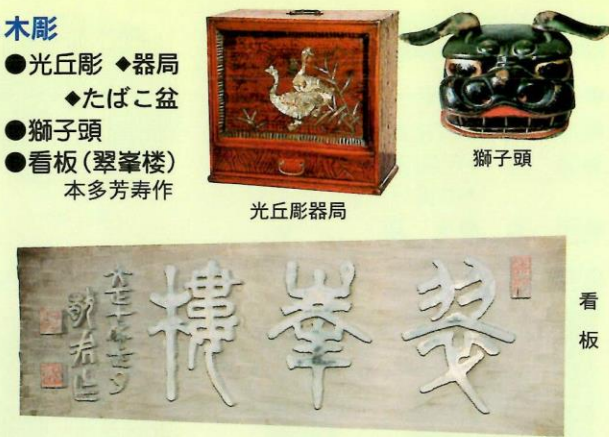 木彫
●光丘彫 ◆器局
◆たばこ盆
●獅子頭
●看板(翠峯楼)
本多芳寿作
光丘彫器局
獅子頭
翠峯樓
看板